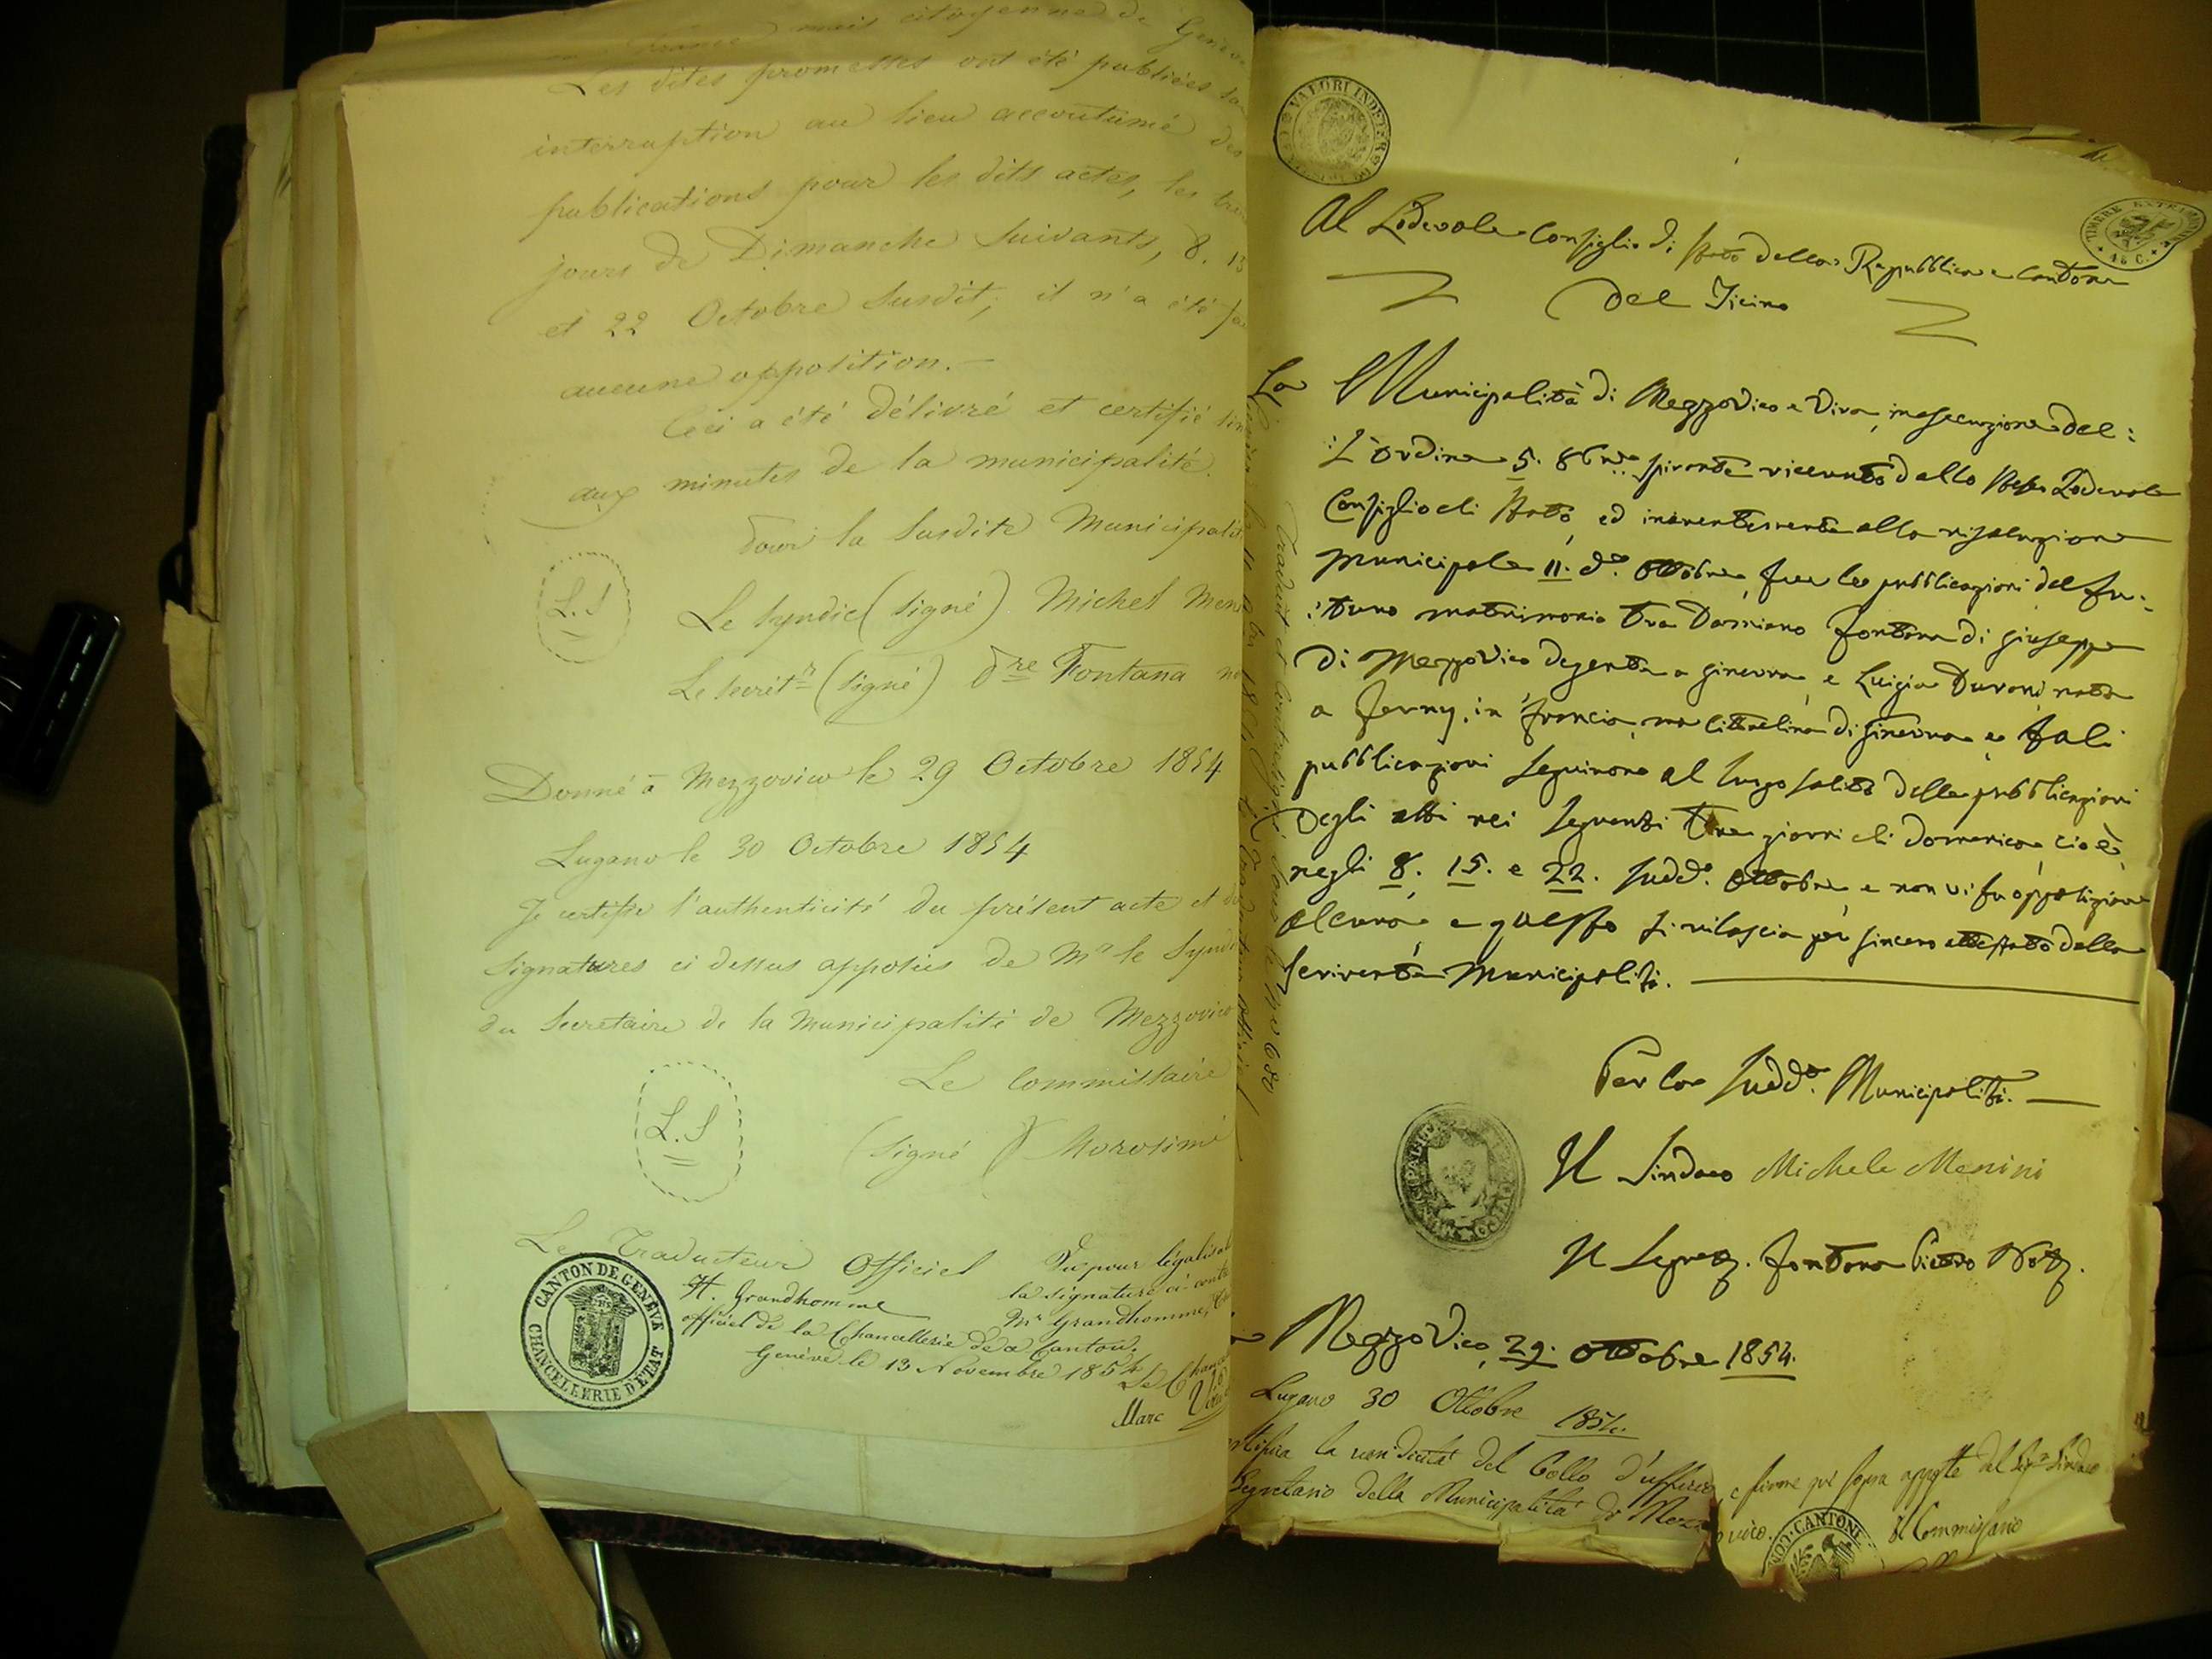 mais citoyenne de Genève
Les dites promesses ont été publiées
interruption au lieu accoutumé des
publications pour les dits actes, les
jours de Dimanche suivants, 8. 15
et 22 Octobre susdit; il n'a été
aucune opposition.—
Ceci a été délivré et certifié
aux minutes de la municipalité.
Pour la susdite Municipalit
L. S
Le Syndic (signé) Michel Men
Le secrétr (signé) Pre Fontana
Donné à Mezzovico le 29 Octobre 1854
Lugano le 30 Octobre 1854
Je certifie l'authenticité du présent acte et
signatures ci dessus apposées de Mr le Synd
du Secretaire de la Municipalité de Mezzovico
Le Commissaire
L. S
(signé) Morosini
Le Traducteur Officiel
H. Grandhomme
officiel de la Chancellerie de ce Canton.
Vu pour légalis
la signature ci-contre
Mr Grandhomme,
Genève le 13 Novembre 1854
Le Chanc
Marc
CANTON DE GENÈVE
CHANCELLERIE D'ETAT
VALORI INDETER
TIMBRE EXTRAORDINAIRE
Al Lodevole Consiglio di Stato della Repubblica e Cantone
Del Ticino
La Municipalità di Mezzovico e Vira, in esecuzione del:
:l'ordine 5. 8bre spirante ricevuto dallo stesso Lodevole
Consiglio di Stato, ed inerentemente alla risoluzione
Municipale 11. do. Ottobre, fece le pubblicazioni del fu:
:turo matrimonio tra Damiano Fontana di Giuseppe
di Mezzovico degente a Ginevra, e Luigia Duroni nata
a Ferny, in Francia, ma cittadina di Ginevra e tali
pubblicazioni seguirono al luogo solito delle pubblicazioni
degli atti nei seguenti tre giorni di domenica, cioè,
negli 8. 15. e 22. sudd.o Ottobre, e non vi fu opposizione
alcuna e questo si rilascia per sincero attestato della
scrivente Municipalità.
Per la sudd.a Municipalità.
Il Sindaco Michele Menini
Il Segret. Fontana Pietro Not.
MezzoVico, 29. Ottobre 1854.
Lugano 30 Ottobre 1854.
la veridicità del Bollo d'ufficio e firme qui sopra apposte dal Sigr Sindaco
Segretario della Municipalità di Mezzovico.
Il Commissario
CANTONE
Traduit et contresigné sous le No 680